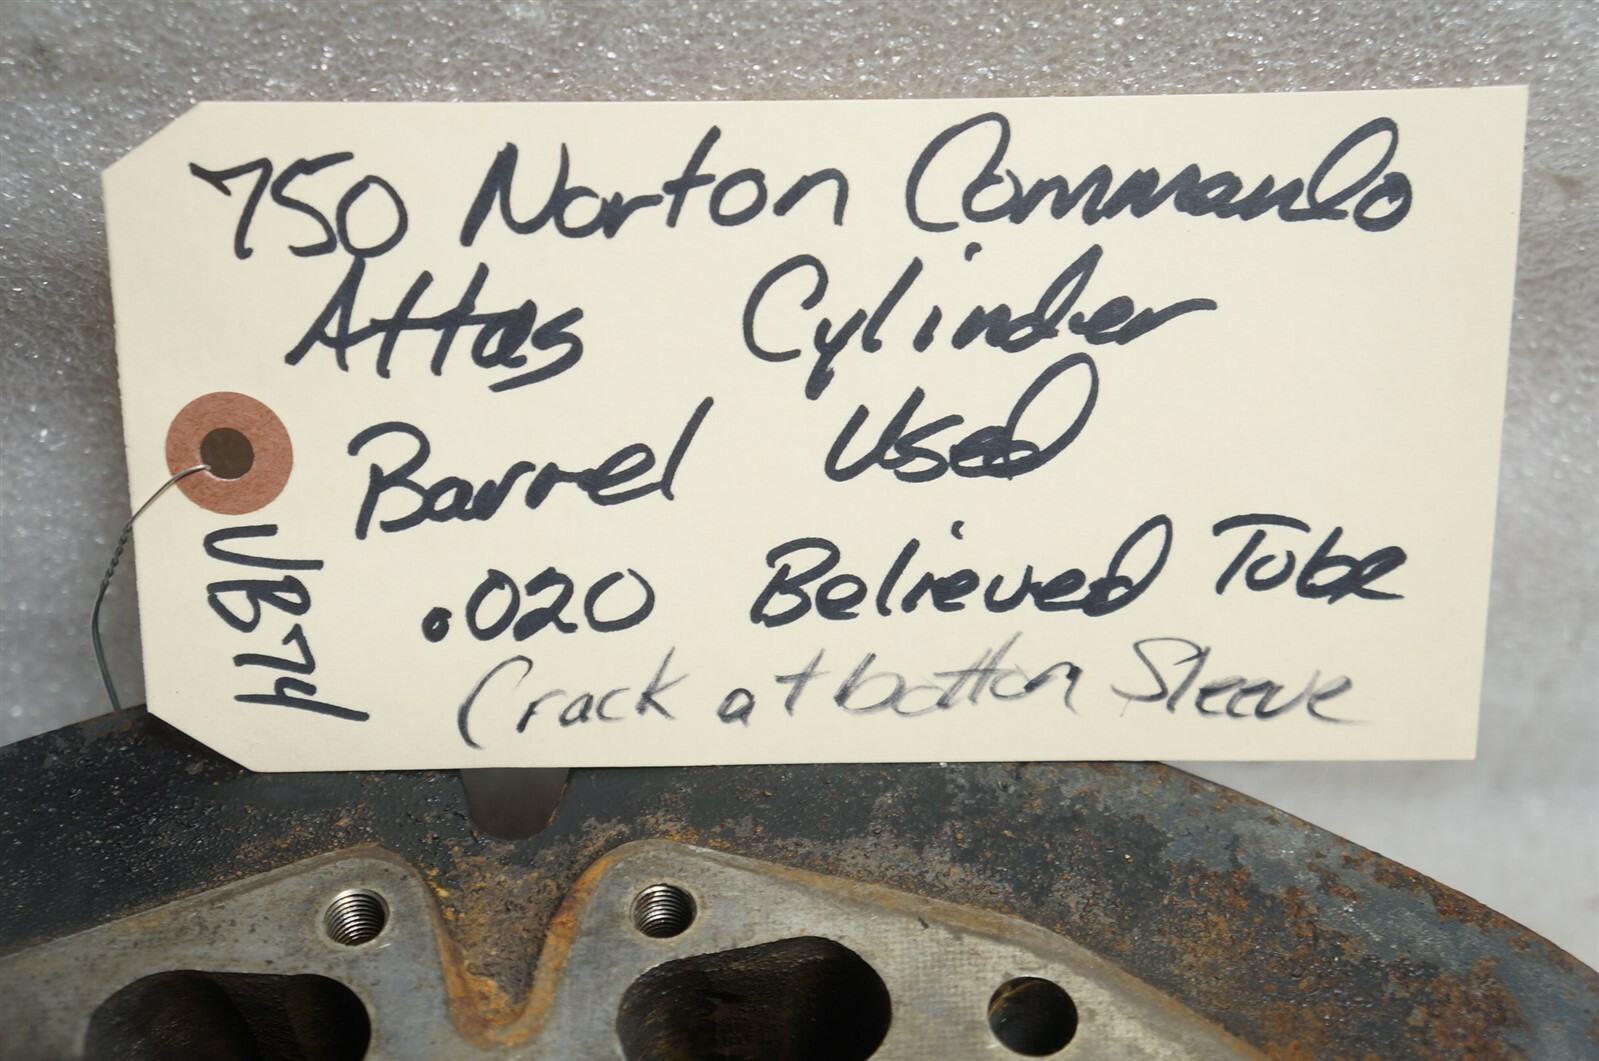 750 Norton Commando
Atlas Cylinder
Barrel Used
.020 Believed Tobe
Crack at bottom Sleeve
UB74